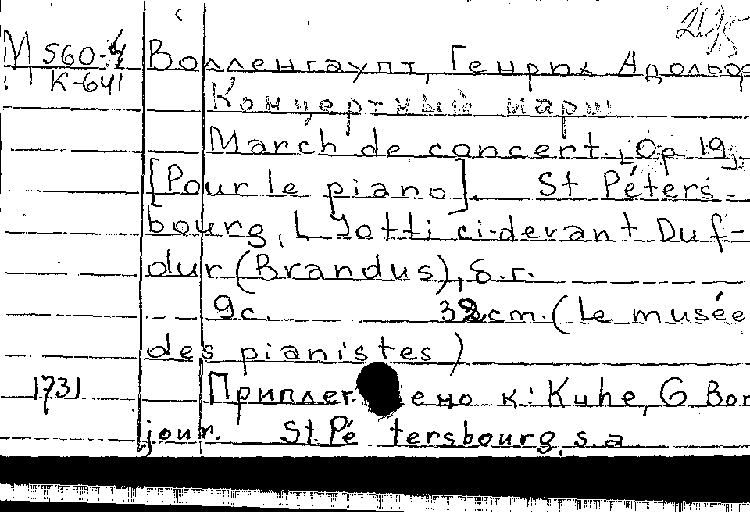 М 560-4 Волленгаупт, Генрих Адольф
К-641
Концертный марш
March de concert. [Op 19].
[Pour le piano]. St Péters-
bourg, L Jotti ci-devant Duf-
dur (Brandus), s.г.
9с. 32cm. (Le musée
des pianistes)
1731 Приплетено к: Kuhe, G Bon
jour. St. Pé tersbourg, s.a